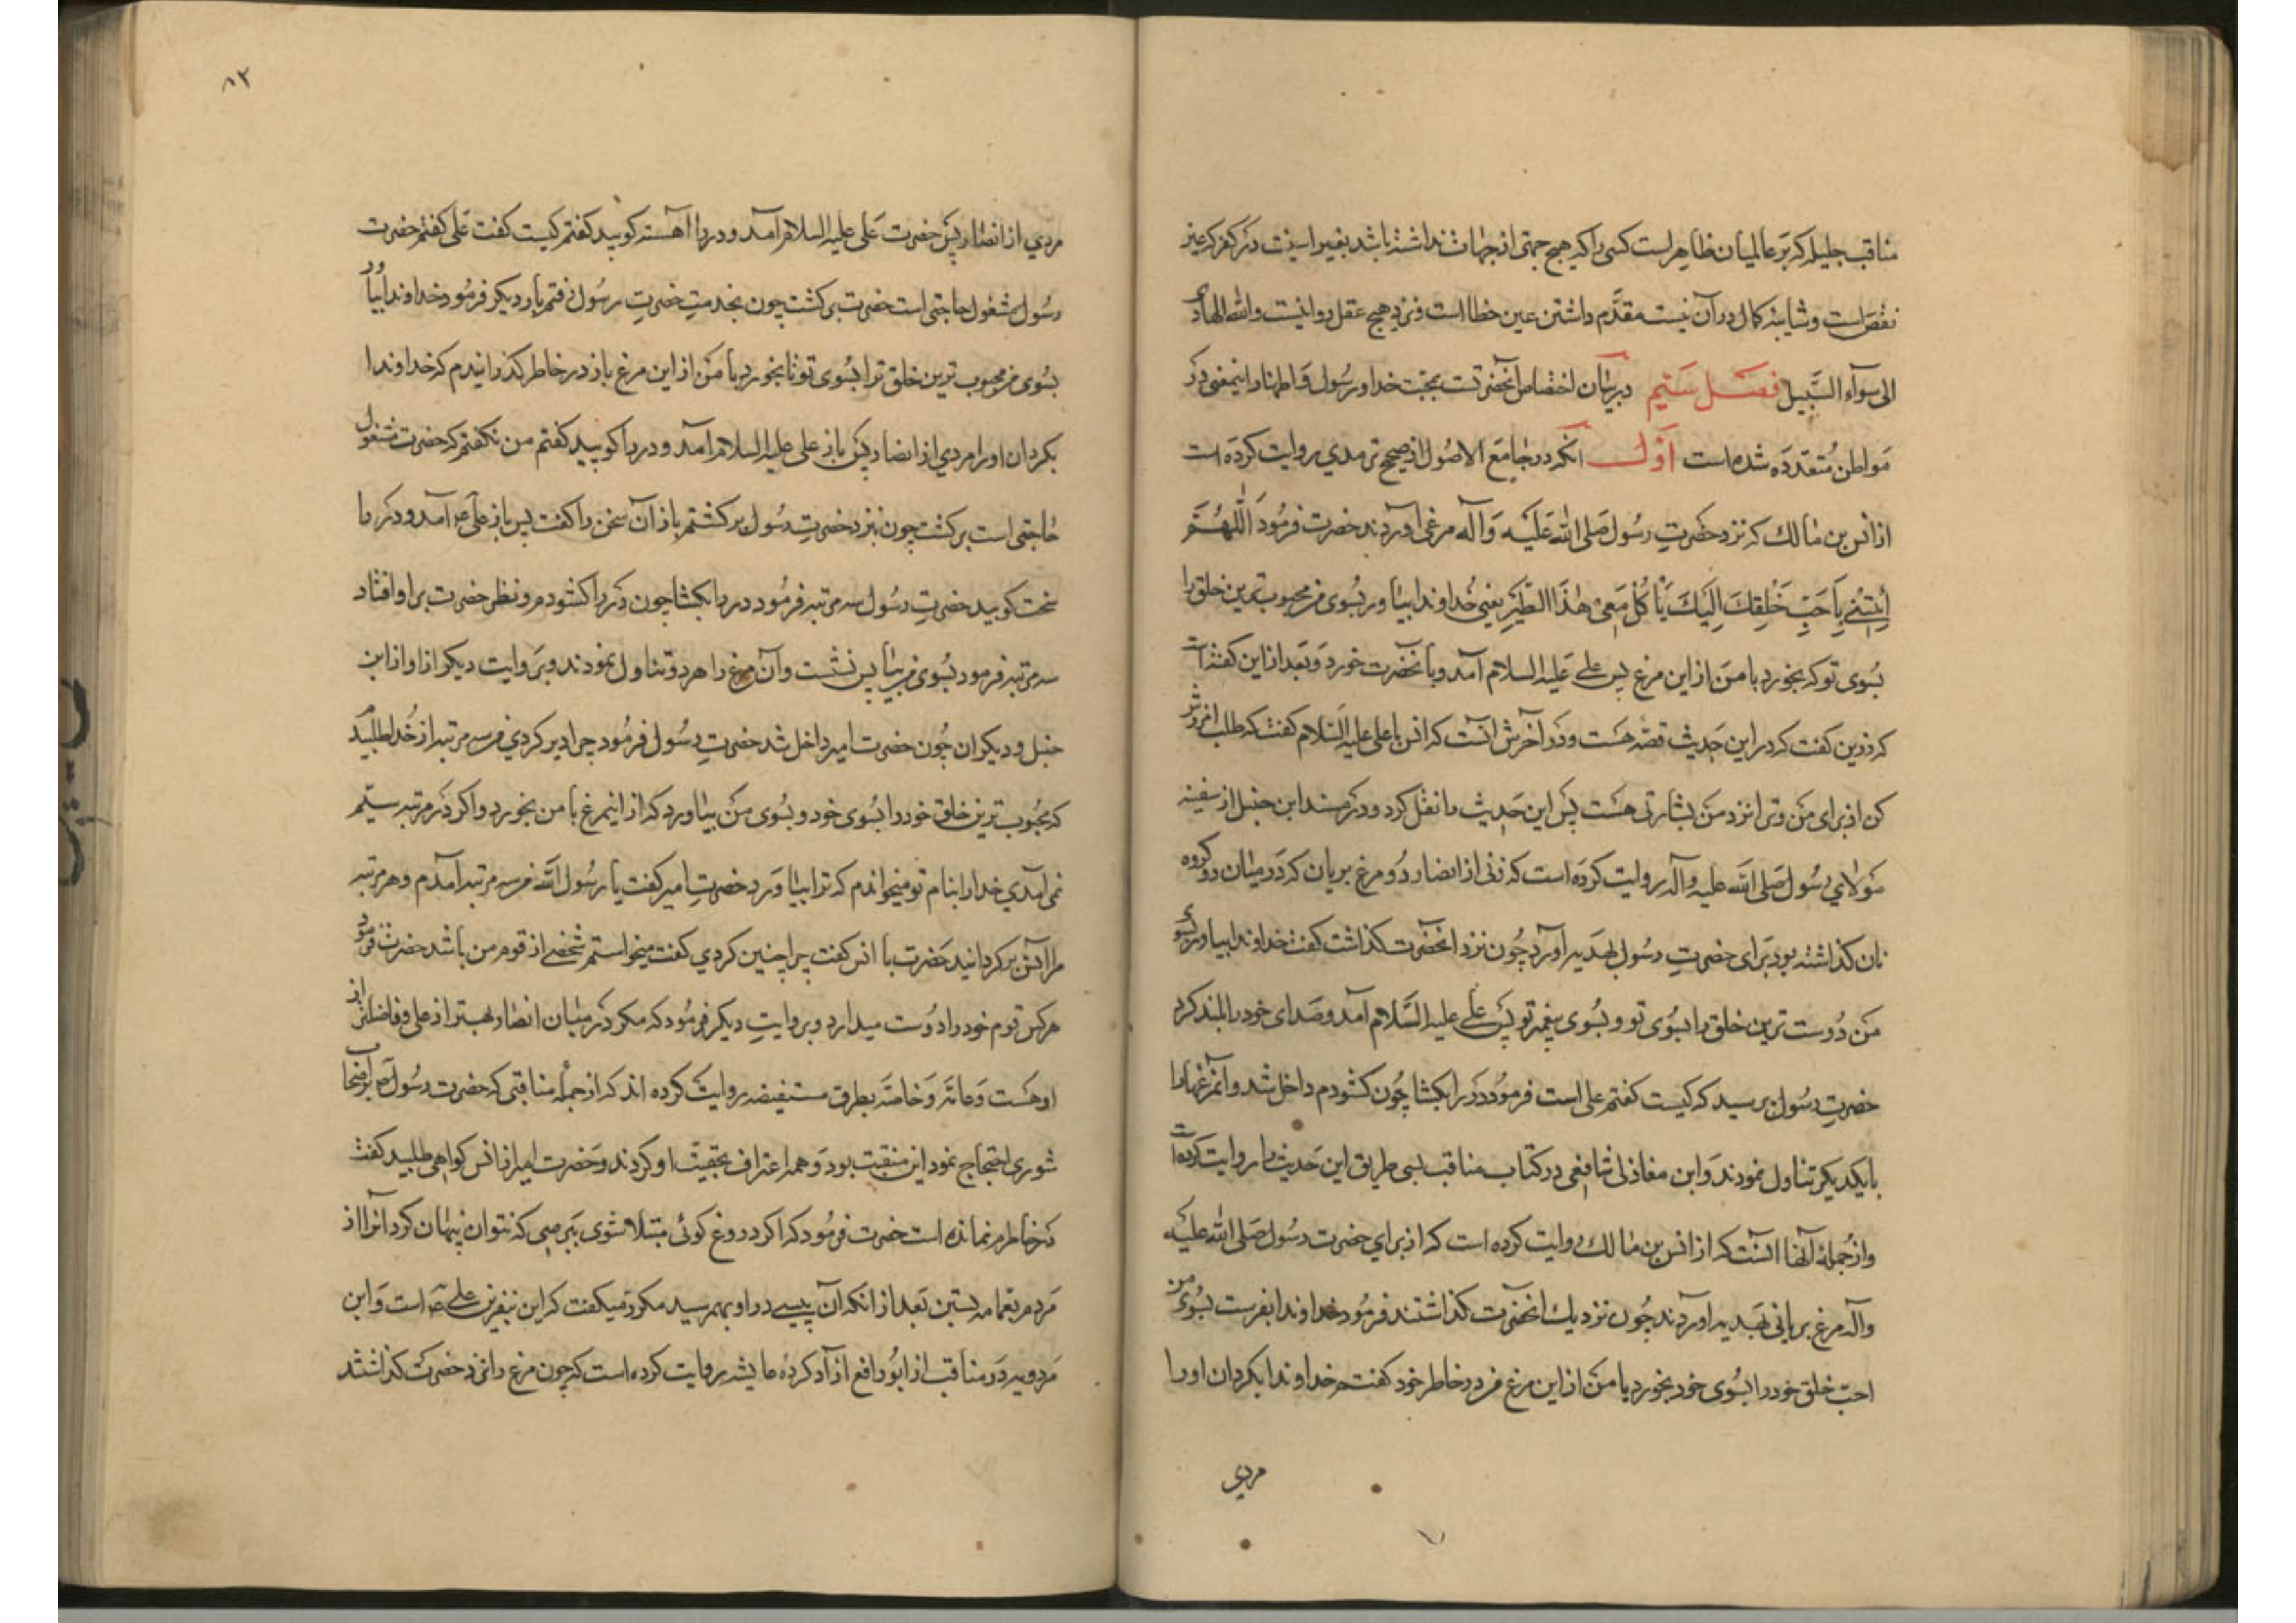 مناقب جلیله که بر عالمیان ظاهر است کسی را که هیچ جهتی از جهات نداشته باشد بغیر اینست در کفر که عین
نقص است و شایبه کمال در آن نیست مقدّم داشتن عین خطا است و نزد هیچ عقل روا نیست والله الهادی
الی سوآء السَّبیل فصل سیّم در بیان اختصاص آنحضرتست بمحبّت خدا و رسُول و اینمعنی در
مَواطن مُتعدّده شده است اَوّل آنکه در جامع الاصُول از صحیح ترمدی روایت کرده است
از انس بن مالک که نزد حضرتِ رسُول صَلی الله عَلَیه وَآله مرغی آوردند حضرت فرمُود اَللّٰهُمَّ
اِئْتِنی بِاَحَبِّ خَلْقِكَ اِلَیكَ یَأْکُلْ مَعی هٰذَا الطَّیْرَ یعنی خُداوندا بیاور بسُوی من محبوب ترین خلق را
بسُوی تو که بخورد با من از این مرغ پس علی عَلیه السلام آمد و با آنحضرت خورد وَ بعد از این گفته است
که رزین گفت که در این حَدیث قصّه هَست و دَر آخرش آنست که انس با علی علیه السَّلام گفت که طلب آمرزش
کن از برای مَن و ترا نزد مَن بشارتی هَست پس این حَدیث را نقل کرد و در مسند ابن حنبل از سفینه
مَولای رسُول صَلی الله علیه وآله روایت کرده است که زنی از انصار دُو مرغ بریان که دَر میان دو گروه
نان گذاشته بود بَرای حضرتِ رسُول بهَدیه آورد چُون نزد آنحضرت گذاشت گفت خداوندا بیاور بسُوی
مَن دُوست ترین خلق را بسُوی تو و بسُوی پیغمبر تو پس علی علیه السَّلام آمد و صَدای خود را بلند کرد
حضرتِ رسُول پرسید که کیست گفتم علی است فرمُود دَر را بگشا چُون گشودم داخل شد و آنمرغها را
با یکدیگر تناول نمودند وَ ابن مغازلی شافعی در کتاب مناقب بسی طریق این حَدیث را روایت کرده است
و از جُمله آنها آنست که از انس بن مالک روایت کرده است که از برای حضرت رسُول صَلی الله علیه
وآله مرغ بریانی بهَدیه آوردند چُون نزدیك آنحضرت گذاشتند فرمُود خداوندا بفرست بسُوی من
احبّ خلق خود را بسُوی خود بخورد با مَن از این مرغ من در خاطر خود گفتم خداوندا بگردان او را
مردی
۸۲
مردی از انصار پس حضرت عَلی علیه السلام آمد و در را آهسته کوبید گفتم کیست گفت عَلی گفتم حضرت
رسُول مشغول حاجتی است حضرت برگشت چون بخدمتِ حضرتِ رسُول رفتم بار دیگر فرمُود خداوندا بیاور
بسُوی من محبوب ترین خلق ترا بسُوی تو تا بخورد با مَن از این مرغ باز در خاطر گذرانیدم که خداوندا
بگردان او را مردی از انصار پس باز علی علیه السلام آمد و در را کوبید گفتم من نگفتم که حضرت مشغول
حاجتی است برگشت چون بنزد حضرتِ رسُول برگشتم باز آن سخن را گفت پس باز علی عم آمد و دَر را
سخت کوبید حضرتِ رسُول سه مرتبه فرمُود در را بگشا چون دَر را گشودم و نظر حضرت بر او افتاد
سه مرتبه فرمود بسُوی من بیا پس نشست و آن مرغ را هر دو تناول نمودند و بَروایت دیگر از او از ابن
حنبل و دیگران چُون حضرت امیر داخل شد حضرتِ رسُول فرمُود چرا دیر کردی من سه مرتبه از خدا طلبیدم
که محبُوب ترین خلق خود را بسُوی خود و بسُوی مَن بیاورد که از اینمرغ با من بخورد و اگر دَر مرتبه سیّم
نمی آمدی خدا را بنام تو میخواندم که ترا بیاوَرد حضرتِ امیر گفت یا رسُول الله من سه مرتبه آمدم و هر مرتبه
مرا انس برگردانید حَضرت با انس گفت چرا چنین کردی گفت میخواستم شخصی از قوم من باشد حضرت فرمود
هر کس قوم خود را دُوست میدارد و بروایتِ دیگر فرمُود که مگر در میان انصار بهتر از علی و فاضلتر از
او هَست وَ عامّه وَ خاصّه بطرق مستفیضه روایت کرده اند که از جمله مناقبی که حضرت رسُول ص بر اصحاب
شوری احتجاج نمود این منقبت بود وَ همه اعتراف بحقیّت او کردند وَ حضرت امیر از انس گواهی طلبید گفت
در خاطرم نمانده است حضرت فرمُود که اگر دروغ گوئی مبتلا شوی ببَرصی که نتوان پنهان کرد آنرا از
مَردم بعمامه بستن بَعد از آنکه آن پیسی در او بهمرسید مکرّر میگفت که این بنفرین علی ع است وَ ابن
مَردویه دَر مناقب از ابُو رافع آزاد کرده عایشه روایت کرده است که چون مرغ را نزد حضرت گذاشتند